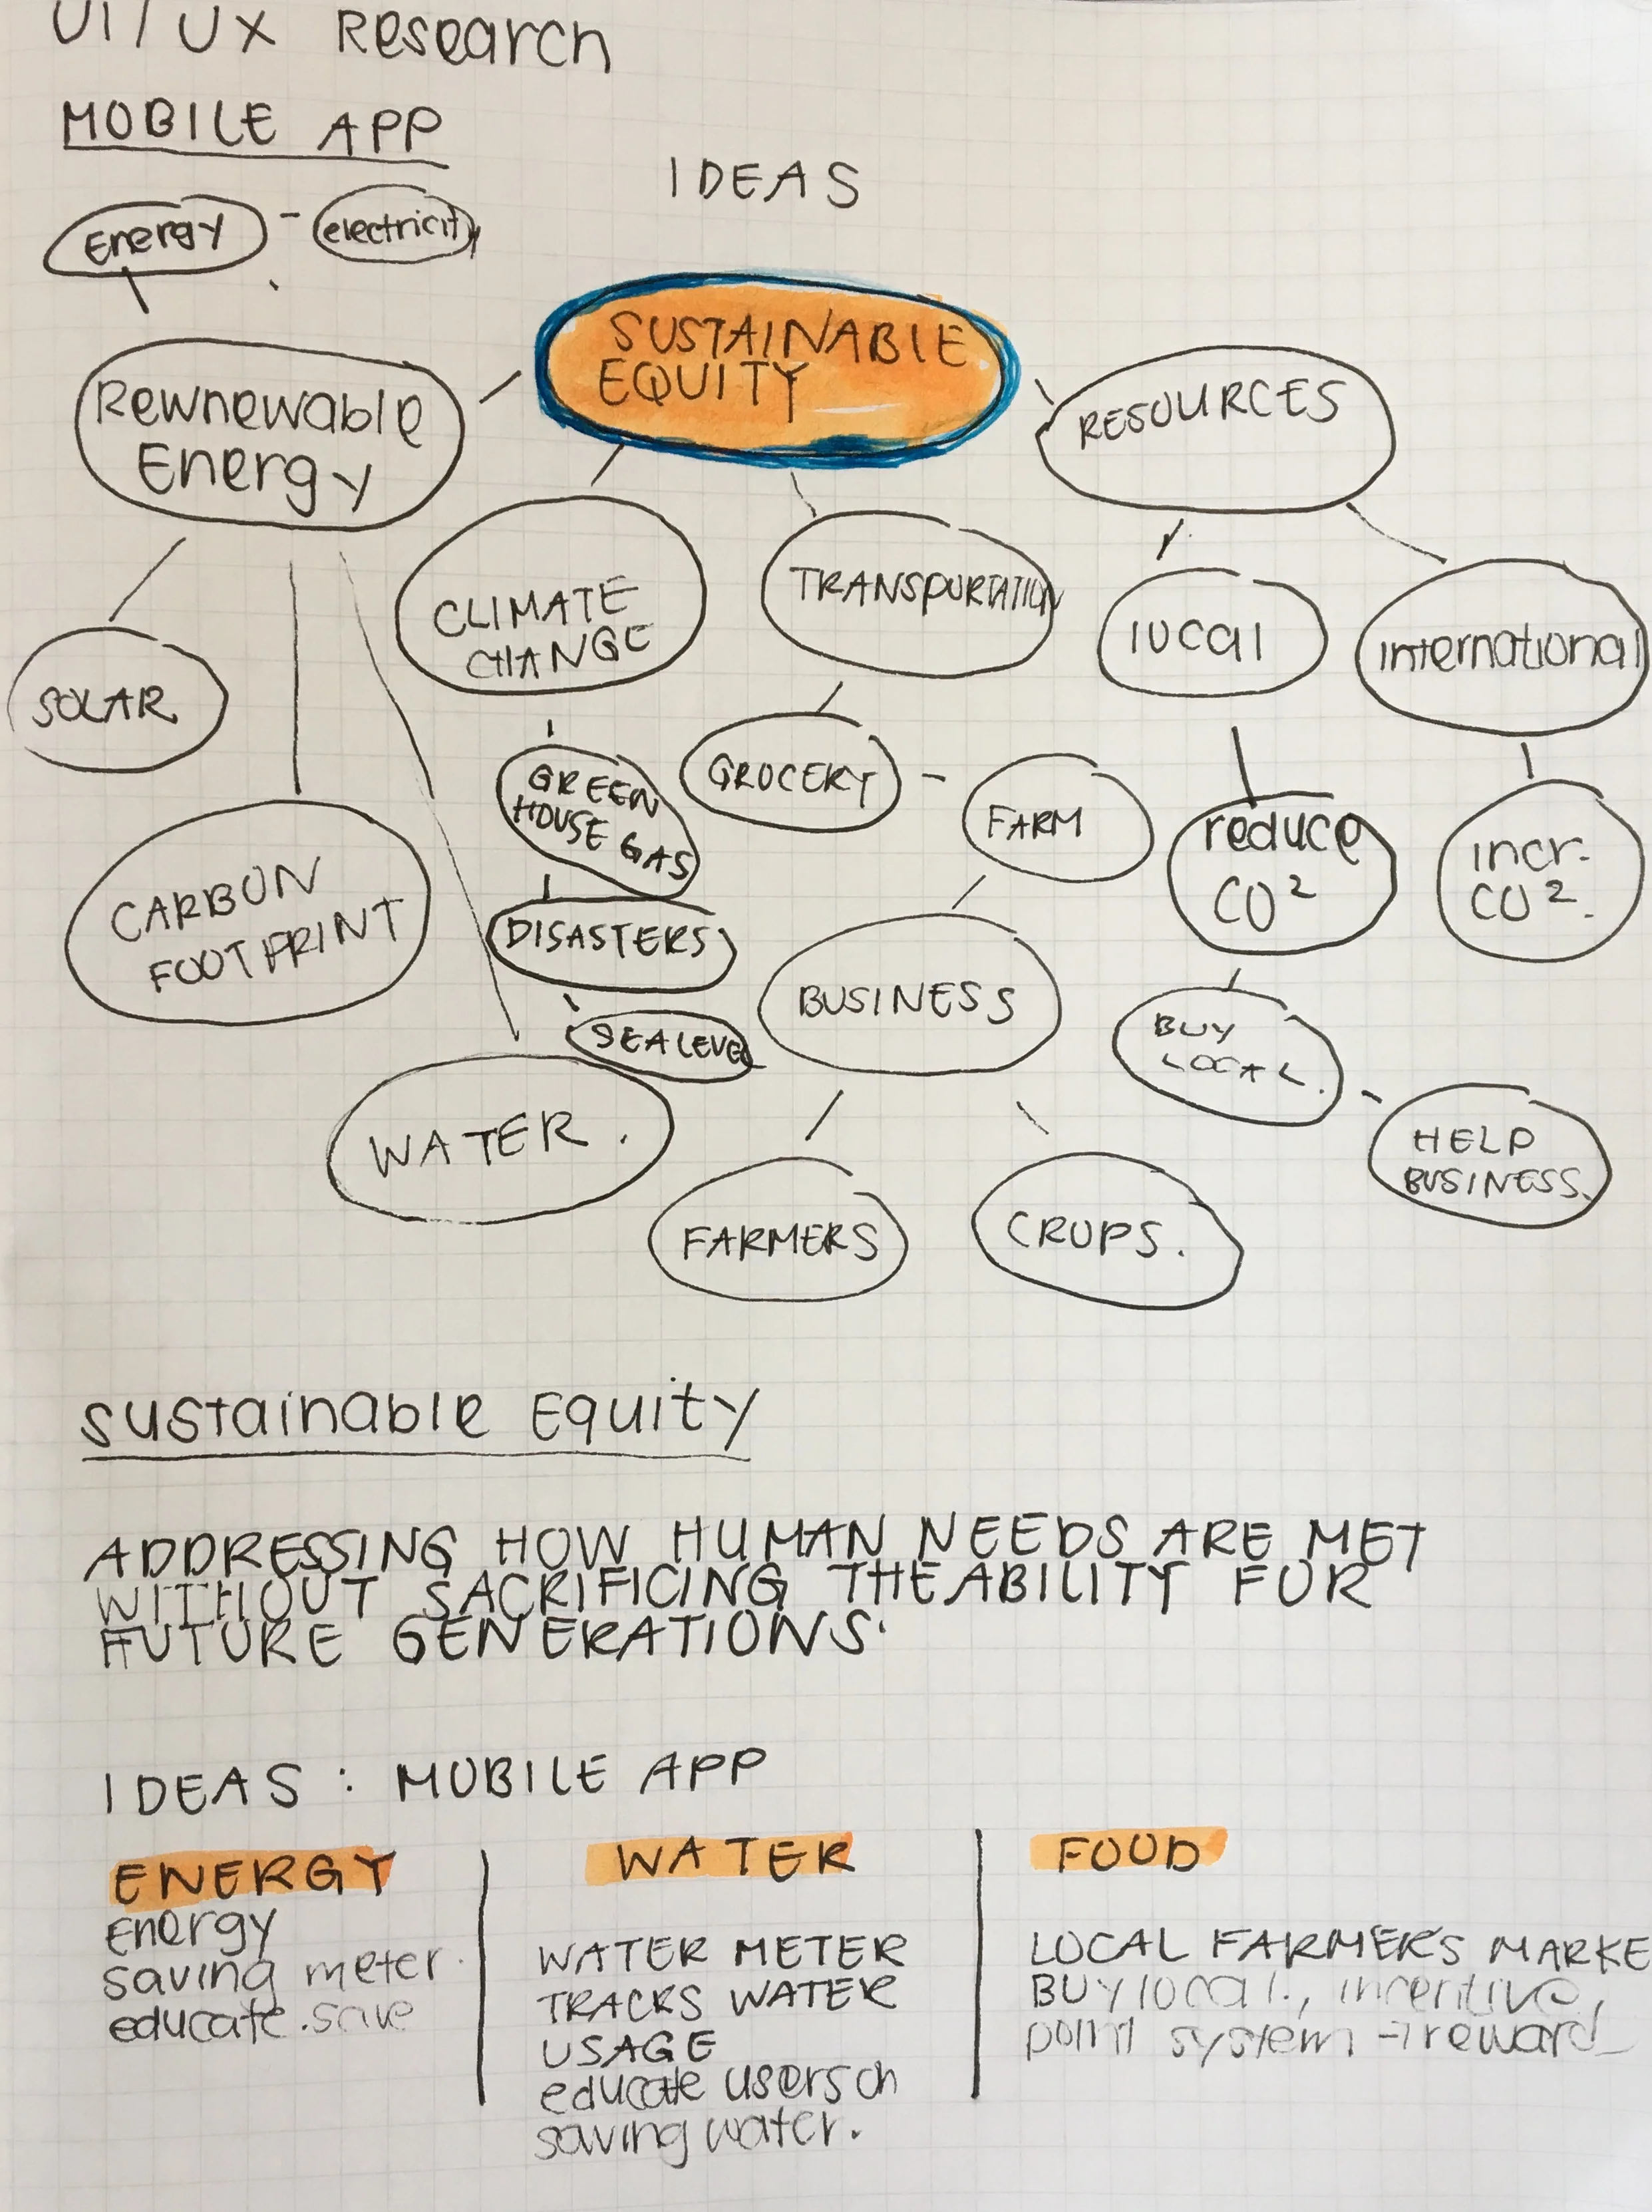 UI / UX Research
MOBILE APP
IDEAS
Energy - electricity
SUSTAINABLE
EQUITY
Rewnewable
Energy
RESOURCES
CLIMATE
CHANGE
TRANSPORTATION
local
international
SOLAR
GREEN
HOUSE GAS
GROCERY - FARM
reduce
CO²
incr.
CO².
CARBON
FOOTPRINT
DISASTERS
SEA LEVEL
BUSINESS
BUY
LOCAL.
WATER.
HELP
BUSINESS.
FARMERS
CROPS.
Sustainable Equity
ADDRESSING HOW HUMAN NEEDS ARE MET
WITHOUT SACRIFICING THE ABILITY FOR
FUTURE GENERATIONS.
IDEAS : MOBILE APP
ENERGY
Energy
saving meter.
educate. save
WATER
WATER METER
TRACKS WATER
USAGE
educate users on
saving water.
FOOD
LOCAL FARMER'S MARKE
BUY local., incentive,
point system → reward